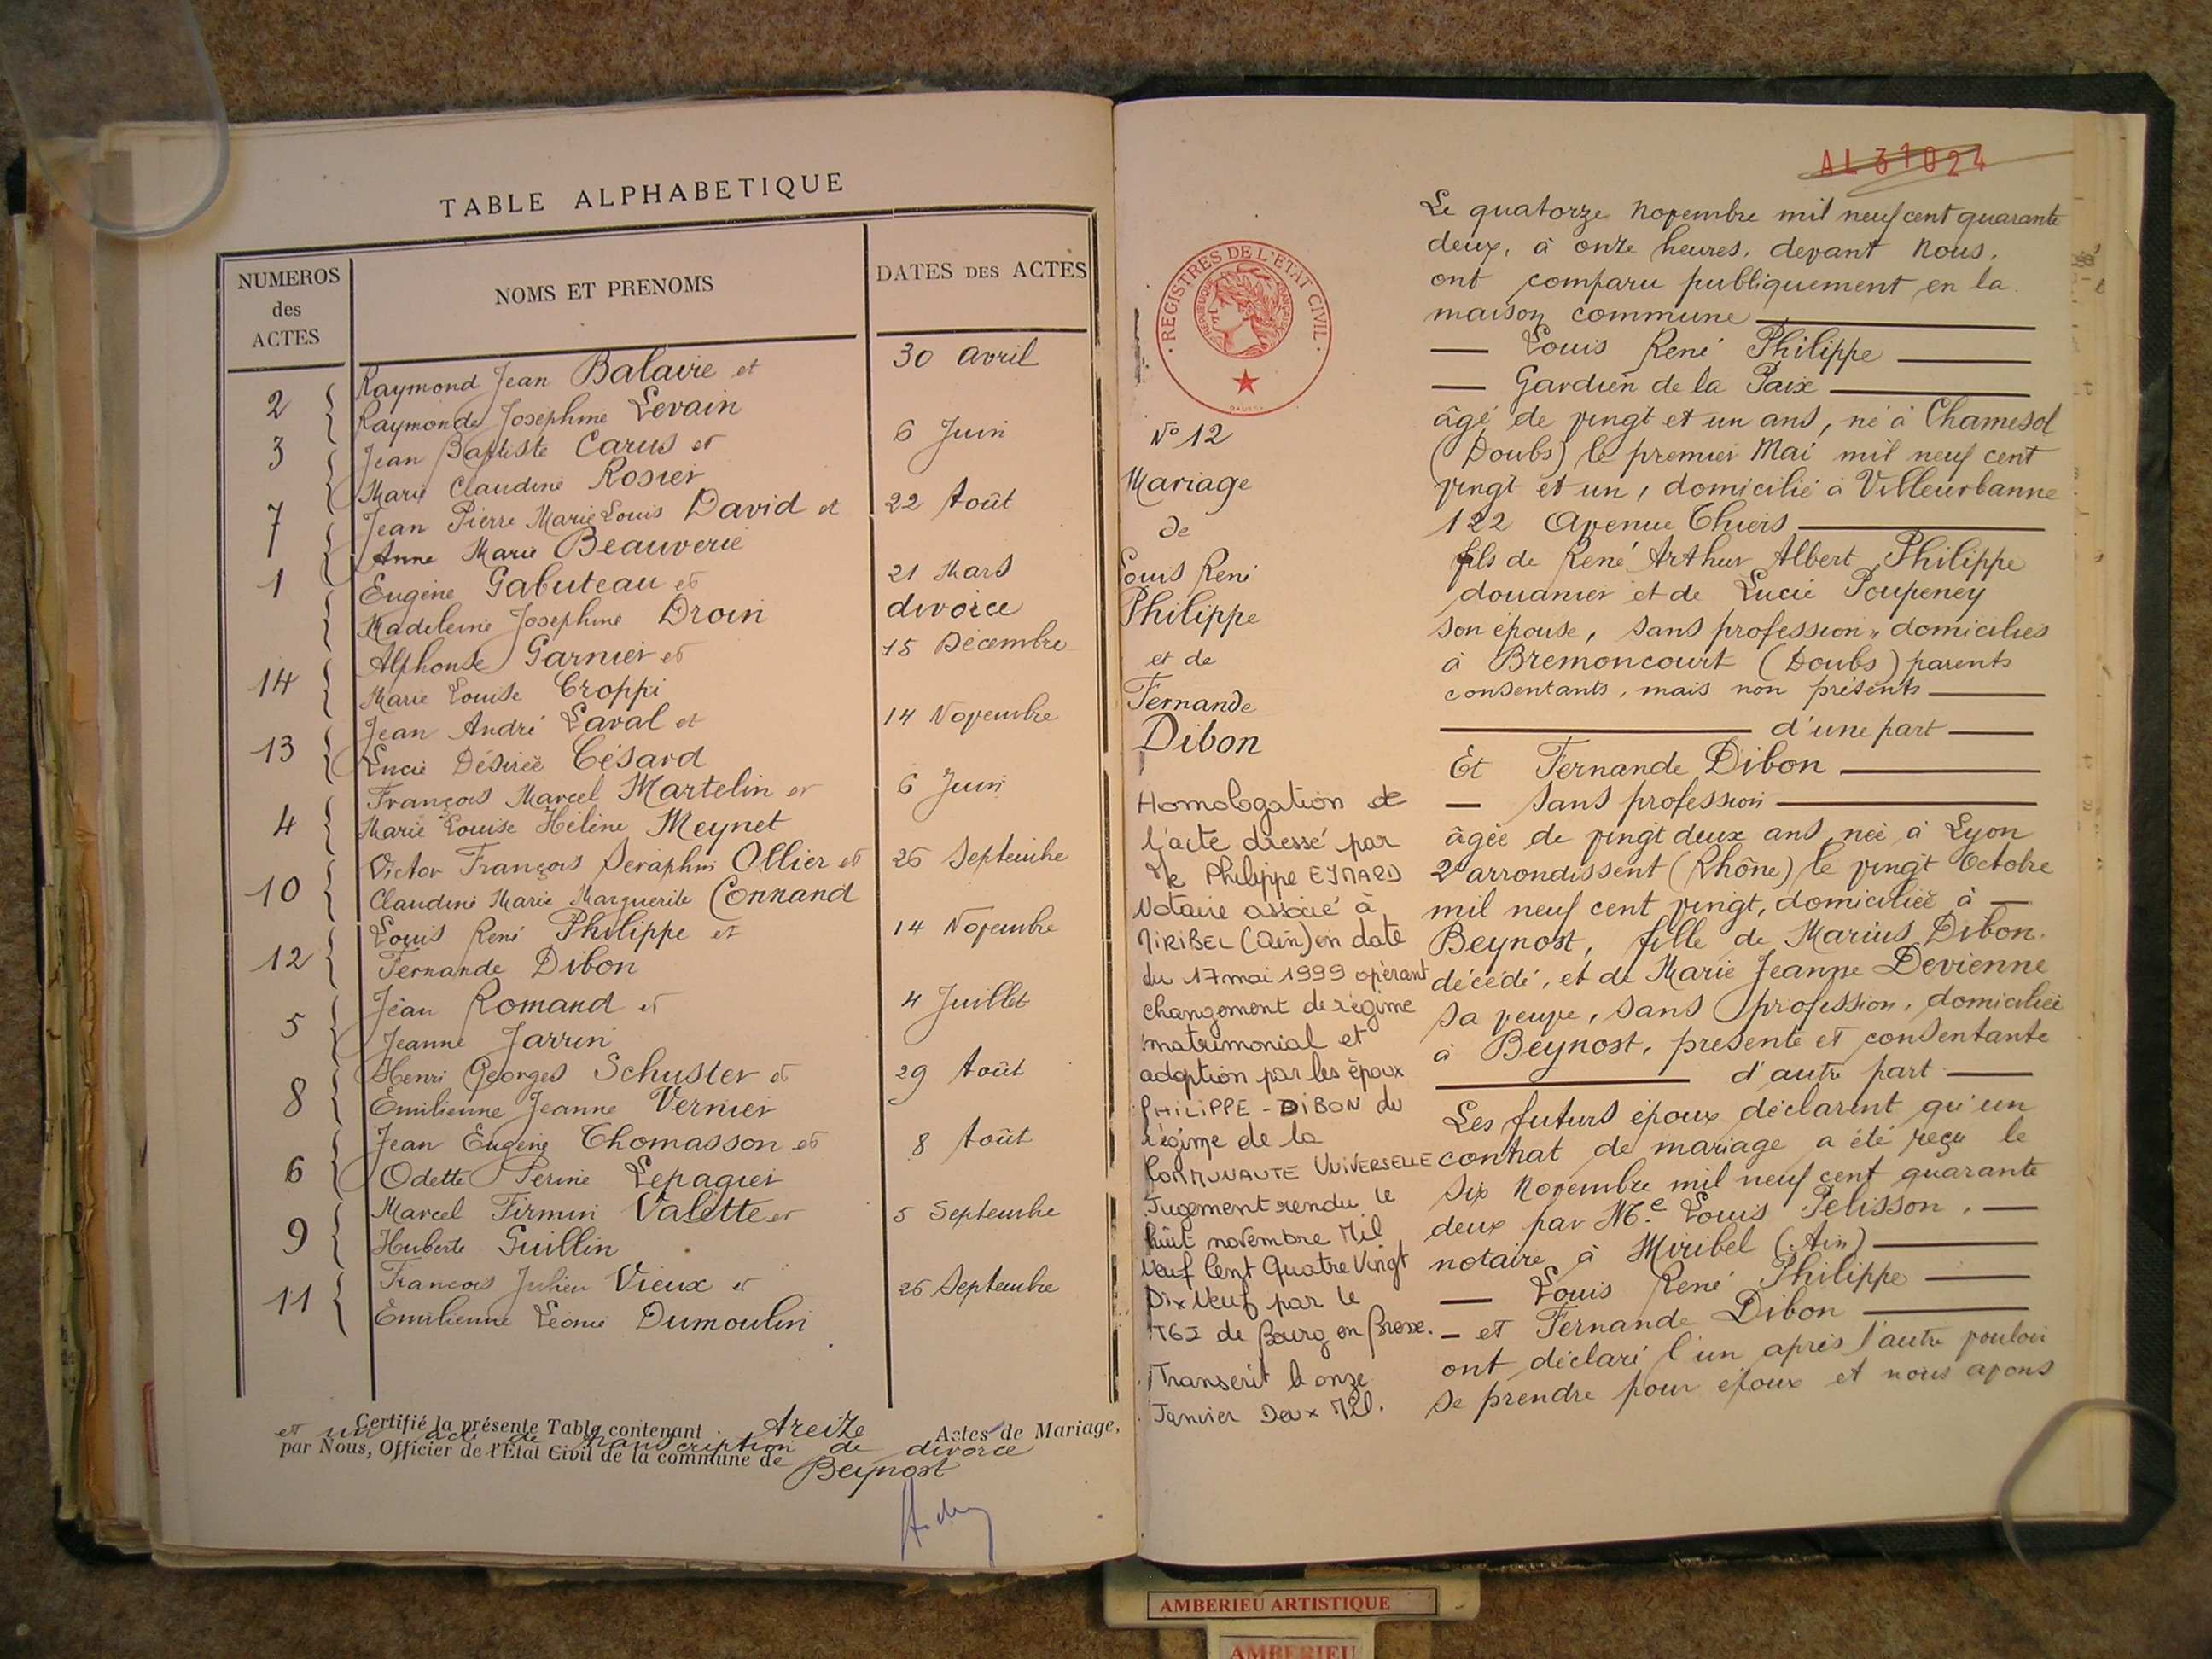 TABLE ALPHABETIQUE
NUMEROS
des
ACTES
NOMS ET PRENOMS
DATES DES ACTES
2
Raymond Jean Balavie et
30 avril
Raymonde Josephine Levain
3
Jean Baptiste Carus et
6 Juin
Marie Claudine Rosier
7
Jean Pierre Marie Louis David et
22 Août
Anne Marie Beauverie
1
Eugène Gabuteau et
21 Mars
Madeleine Josephine Droin
divorce
14
Alphonse Garnier et
15 Décembre
Marie Louise Croppi
13
Jean André Laval et
14 Novembre
Lucie Désirée Césard
4
François Marcel Martelin et
6 Juin
Marie Louise Hélène Meynet
10
Victor François Séraphin Ollier et
26 Septembre
Claudine Marie Marguerite Connand
12
Louis René Philippe et
14 Novembre
Fernande Dibon
5
Jean Romand et
4 Juillet
Jeanne Jarrin
8
Henri Georges Schuster et
29 Août
Emilienne Jeanne Vernier
6
Jean Eugène Thomasson et
8 Août
Odette Perine Lepagier
9
Marcel Firmin Valette et
5 Septembre
Huberte Guillin
11
François Julien Vieux et
26 Septembre
Emilienne Léonie Dumoulin
Certifié la présente Table contenant treize Actes de Mariage,
et un acte de transcription de divorce
par Nous, Officier de l'Etat Civil de la commune de Beynost
AL 31024
REGISTRES DE L'ETAT CIVIL
REPUBLIQUE FRANÇAISE
N° 12
Mariage
de
Louis René
Philippe
et de
Fernande
Dibon
Homologation de
l'acte dressé par
Me Philippe EYMARD
Notaire associé à
MIRIBEL (Ain) en date
du 17 mai 1999 opérant
changement de régime
matrimonial et
adoption par les époux
PHILIPPE - DIBON du
régime de la
COMMUNAUTE UNIVERSELLE
Jugement rendu le
huit novembre Mil
Neuf Cent Quatre Vingt
Dix Neuf par le
TGI de Bourg en Bresse.
Transcrit le onze
Janvier Deux Mil.
Le quatorze Novembre mil neuf cent quarante
deux, à onze heures, devant Nous,
ont comparu publiquement en la
maison commune
Louis René Philippe
Gardien de la Paix
âgé de vingt et un ans, né à Chamesol
(Doubs) le premier Mai mil neuf cent
vingt et un, domicilié à Villeurbanne
122 Avenue Thiers
fils de René Arthur Albert Philippe
douanier et de Lucie Poupeney
son épouse, sans profession, domiciliés
à Bremoncourt (Doubs) parents
consentants, mais non présents
d'une part
Et Fernande Dibon
sans profession
âgée de vingt deux ans, née à Lyon
2e arrondissent (Rhône) le vingt Octobre
mil neuf cent vingt, domiciliée à
Beynost, fille de Marius Dibon
décédé, et de Marie Jeanne Devienne
sa veuve, sans profession, domiciliée
à Beynost, présente et consentante
d'autre part
Les futurs époux déclarent qu'un
contrat de mariage a été reçu le
six Novembre mil neuf cent quarante
deux par Me Louis Pelisson,
notaire à Miribel (Ain)
Louis René Philippe
et Fernande Dibon
ont déclaré l'un après l'autre vouloir
se prendre pour époux et nous avons
AMBERIEU ARTISTIQUE
AMBERIEU